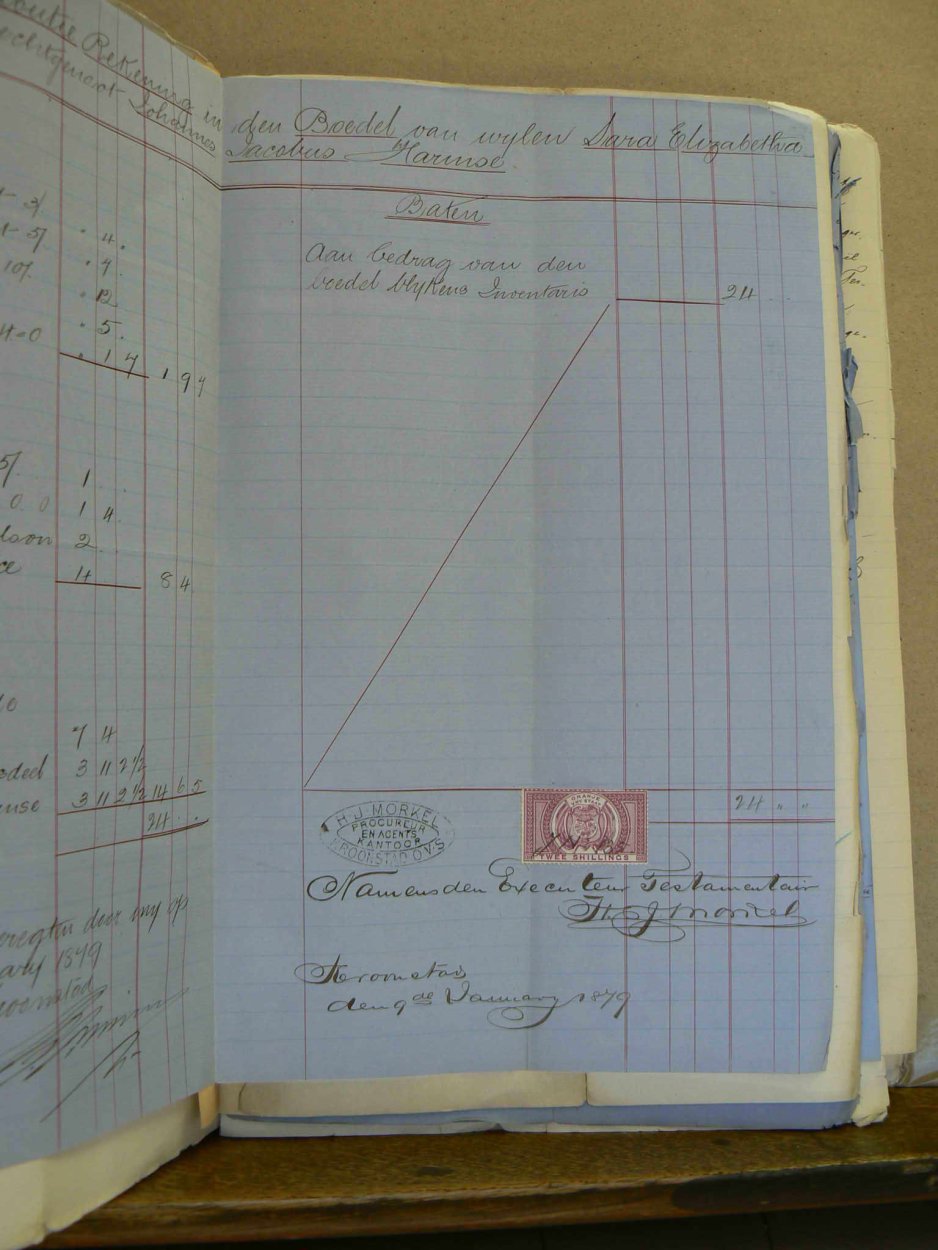 Rekening in den Boedel van wylen Sara Elizabetha
Johannes Jacobus Harmse
Baten
Aan bedrag van den
boedel blykens Inventaris 24
24 " "
H. J. MORKEL
PROCUREUR
EN AGENTS
KANTOOR
KROONSTAD O.V.S
ORANJE
VRY STAAT
TWEE SHILLINGS
Namens den Executeur Testamentair
H. J. Morkel
Kroonstad
den 9de January 1879
- 3/
- 5/ " 4 "
10/. " 4 "
" 12
4=0 " 5 "
" 1 7 1 9 7
5/. 1
0.0 1 4
2
4 8 4
7 4
3 11 2 1/2
3 11 2 1/2 14 6 5
34
door my op
1879